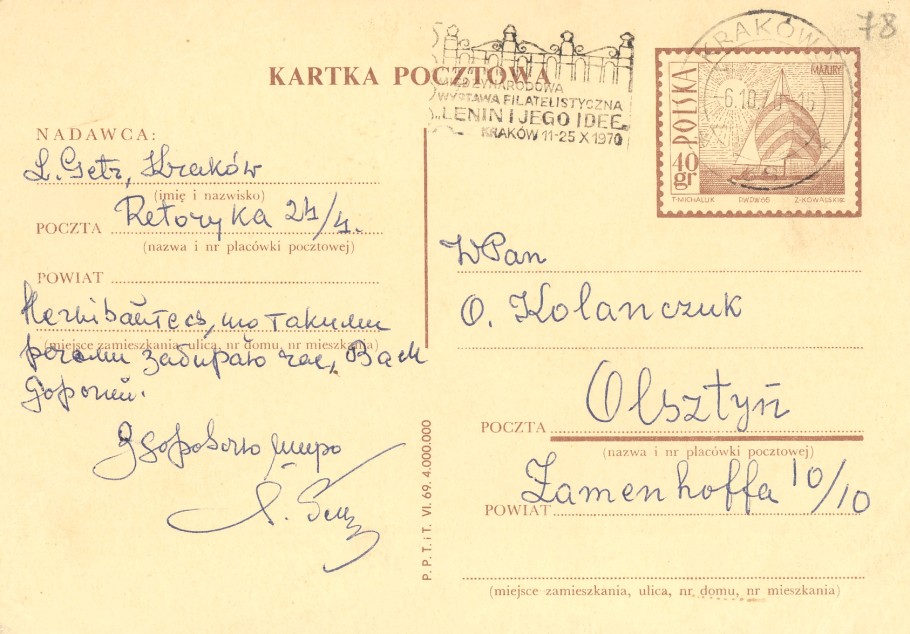 78
KARTKA POCZTOWA
MIĘDZYNARODOWA
WYSTAWA FILATELISTYCZNA
„LENIN I JEGO IDEE”
KRAKÓW 11-25 X 1970
KRAKÓW
6.10.70
POLSKA
40 gr
MAZURY
T·MICHALUK
Z·KOWALSKI
NADAWCA:
L. Getz, Kraków
(imię i nazwisko)
POCZTA Retoryka 24/4.
(nazwa i nr placówki pocztowej)
POWIAT
(miejsce zamieszkania, ulica, nr domu, nr mieszkania)
Вас
Здоровлю щиро
Л. Ґец
P. P. T. i T. VI. 69. 4.000.000
WPan
O. Kolanczuk
POCZTA Olsztyń
(nazwa i nr placówki pocztowej)
Zamenhoffa 10/10
POWIAT
(miejsce zamieszkania, ulica, nr domu, nr mieszkania)